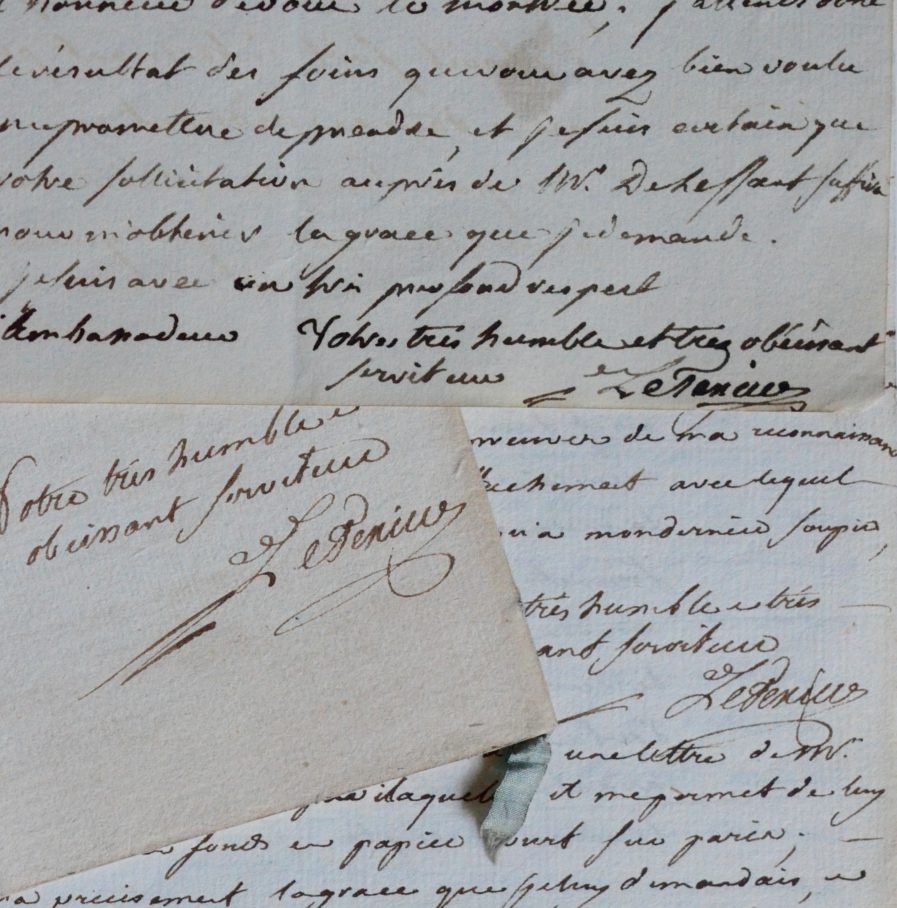 honneur de vous le montrer; j'attends donc
le résultat des soins que vous avez bien voulu
me promettre de prendre, et je suis certain que
votre sollicitation auprès de Mr. Delessart suffira
pour m'obtenir la grace que je demande.
je suis avec un très profond respect
Votre très humble et trez obéissant
serviteur
Votre très humble e
obeissant serviteur
de ma reconnaissan
avec lequel
mon dernier soupir,
très humble e très
ant serviteur
une lettre de Mr.
laquel il me permet de luy
fonds en papier court sur paris;
precisement la grace que je luy demandais, e